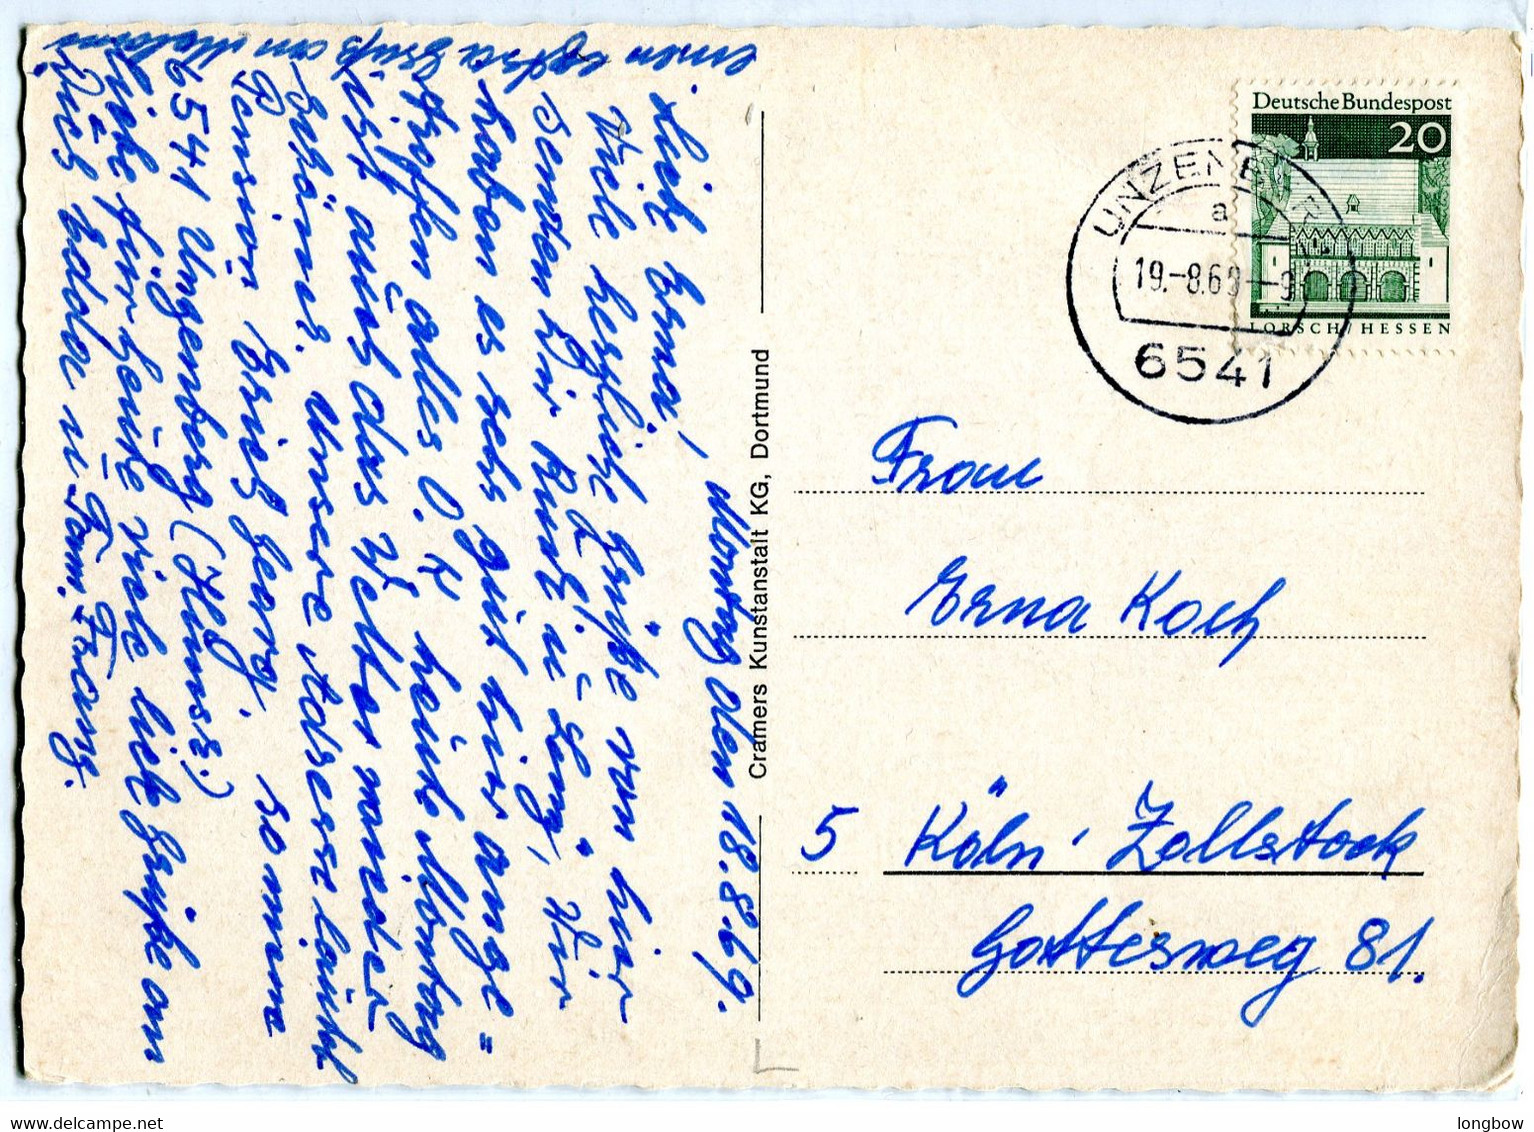 Montag den 18.8.69.
Liebe Erna,
Viele herzliche Grüße von hier
senden wir Rudi u. Leni, Wir
haben es sehr gut hier ange=
troffen alles O.K. heute Montag
ist auch das Wetter wieder
schön. Unsere Adresse lautet
Pension Ernst Georg.
6541 Unzenberg (Hunsr.)
Liebe für heute viele liebe Grüße an
Dich Edda u. Fam. Franz.
einen extra Gruß an
Cramers Kunstanstalt KG, Dortmund
Deutsche Bundespost
20
LORSCH/HESSEN
UNZENBERG
a
19.-8.69-9
6541
Frau
Erna Koch
5 Köln, Zollstock
Gottesweg 81.
delcampe.net
longbow